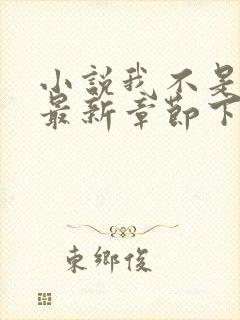 小説我不是
最新章節下
東鄉俊